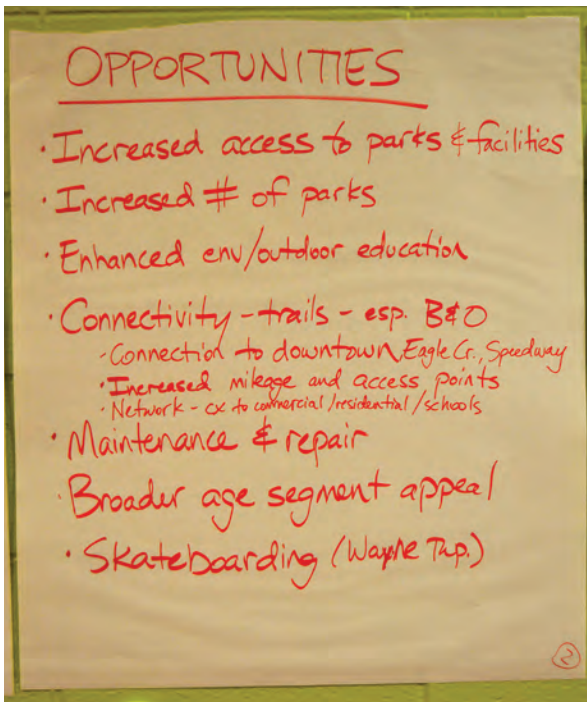 OPPORTUNITIES
• Increased access to parks & facilities
• Increased # of parks
• Enhanced env/outdoor education
• Connectivity - trails - esp. B&O
- Connection to downtown, Eagle Cr., Speedway
• Increased mileage and access points
• Network - cx to commercial/residential/schools
• Maintenance & repair
• Broader age segment appeal
• Skateboarding (Wayne Twp.)
2